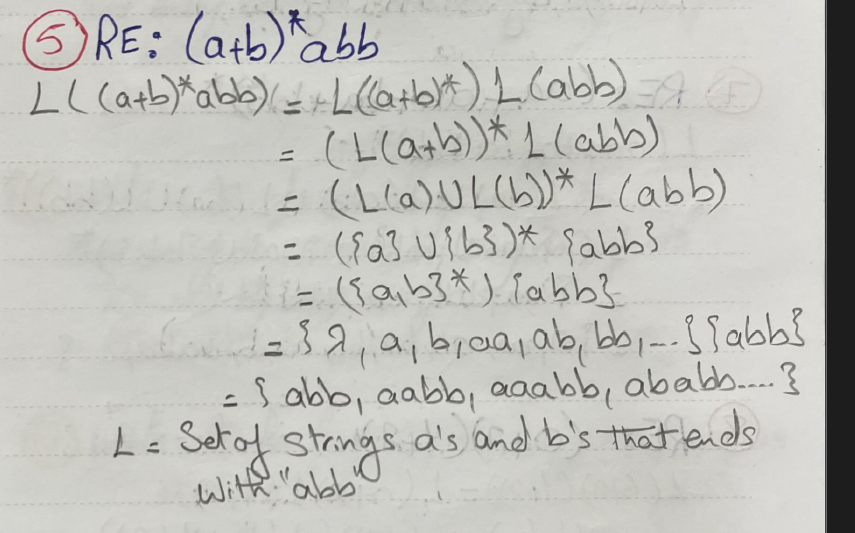 ⑤ RE: (a+b)*abb
L((a+b)*abb) = L((a+b)*) L(abb)
= (L(a+b))* L(abb)
= (L(a)∪L(b))* L(abb)
= ({a}∪{b})* {abb}
= ({a,b}*) {abb}
= {λ, a, b, aa, ab, bb, ...}{abb}
= {abb, aabb, aaabb, ababb....}
L = Set of strings a's and b's that ends
with "abb"